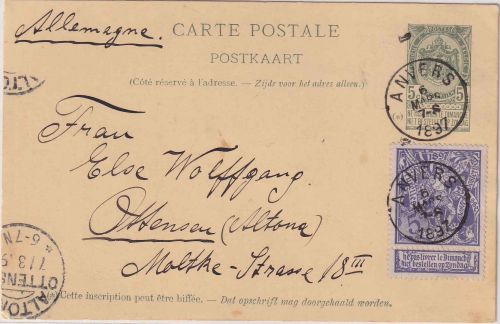 Allemagne.
CARTE POSTALE
POSTKAART
(Côté réservé à l'adresse. — Zijde voor het adres alleen.)
5 5
ANVERS
6
MARS
7-S
1897
Frau
Else Wolffgang.
Ottensen (Altona)
Moltke-Strasse 18III
ANVERS
6
MARS
1897
NE PAS LIVRER LE DIMANCHE
NIET BESTELLEN OP ZONDAG
* 6-7N
7.13.9
OTTENS
ALTO
(*) Cette inscription peut être biffée. — Dat opschrift mag doorgehaald worden.